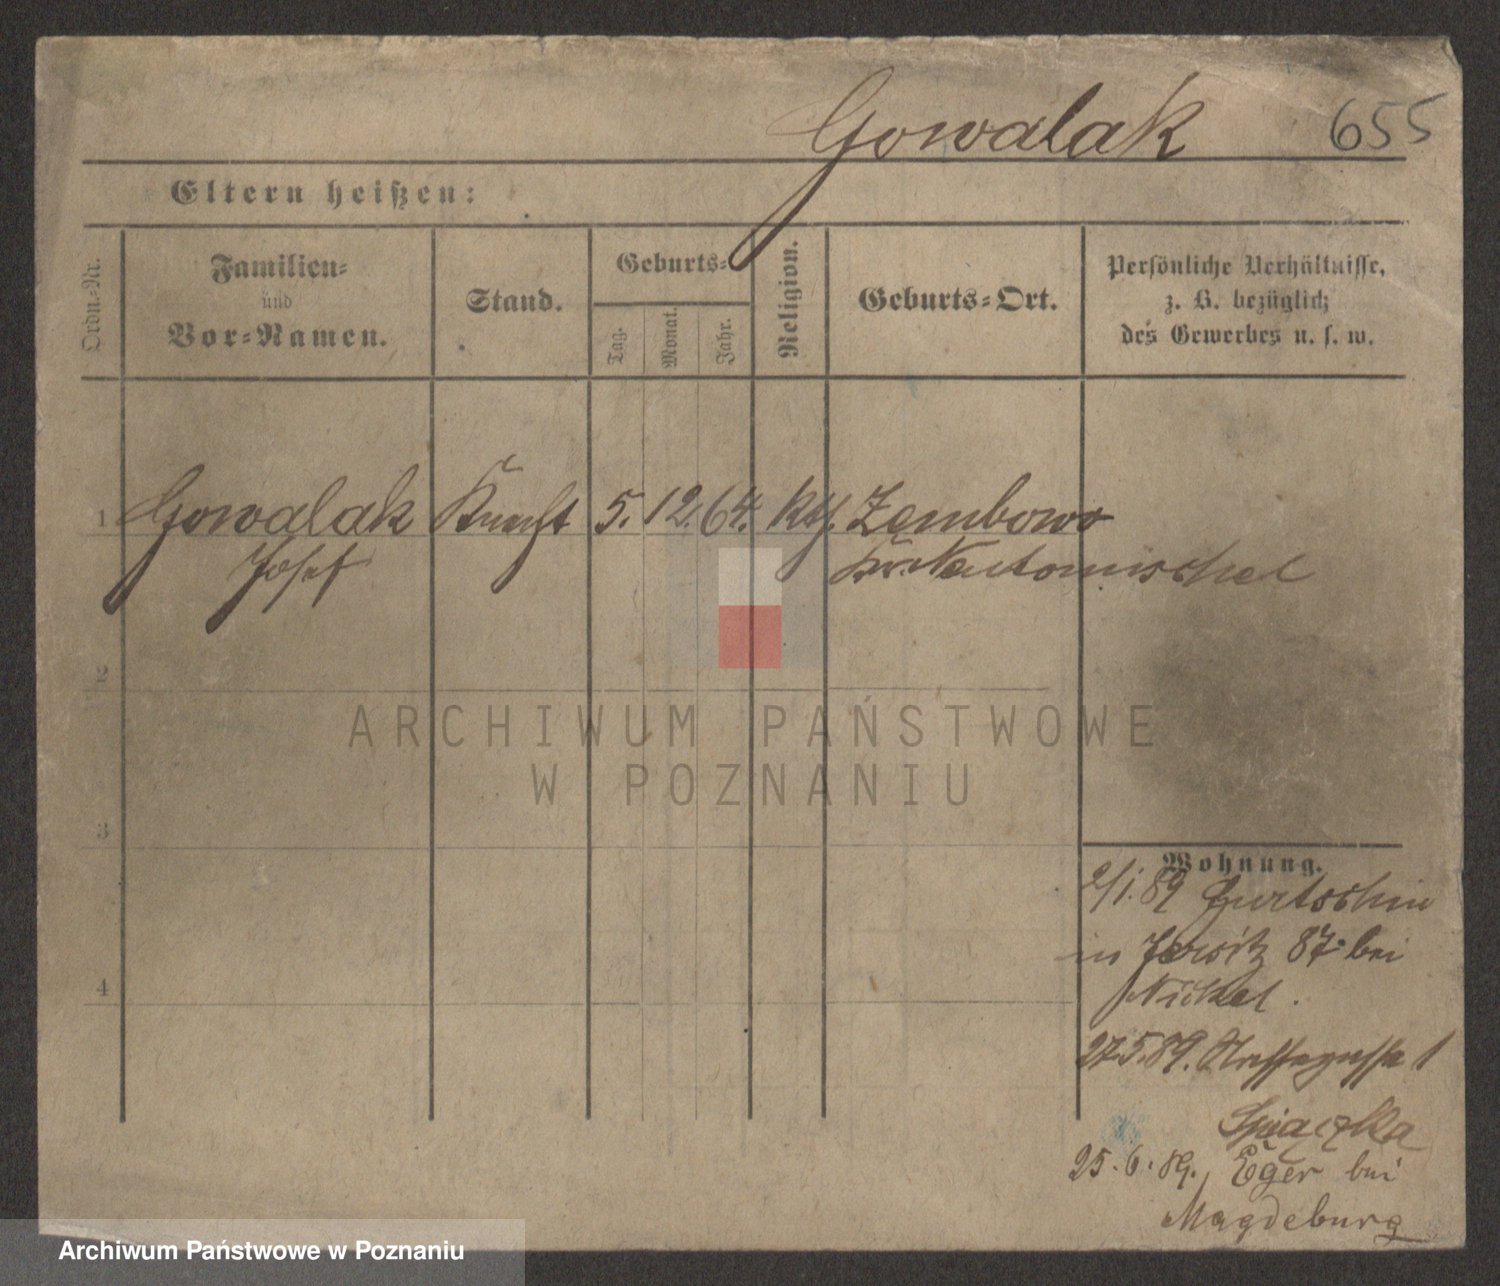 Gowalak 655
Eltern heißen:
Ordn.-Nr.
Familien-
und
Vor-Namen.
Stand.
Geburts-
Tag.
Monat.
Jahr.
Religion.
Geburts-Ort.
Persönliche Verhältnisse,
z. B. bezüglich
des Gewerbes u. s. w.
1 Gowalak Knecht 5. 12. 64. kth. Zembowo
Josef Kr. Neutomischel
2
ARCHIWUM PAŃSTWOWE
W POZNANIU
3
Wohnung.
2/1.89 Gurtschin
in Jersitz 87 bei
Nickel.
27.5.89. 1
Spiaczka
25.6.89. Eger bei
Magdeburg
4
Archiwum Państwowe w Poznaniu